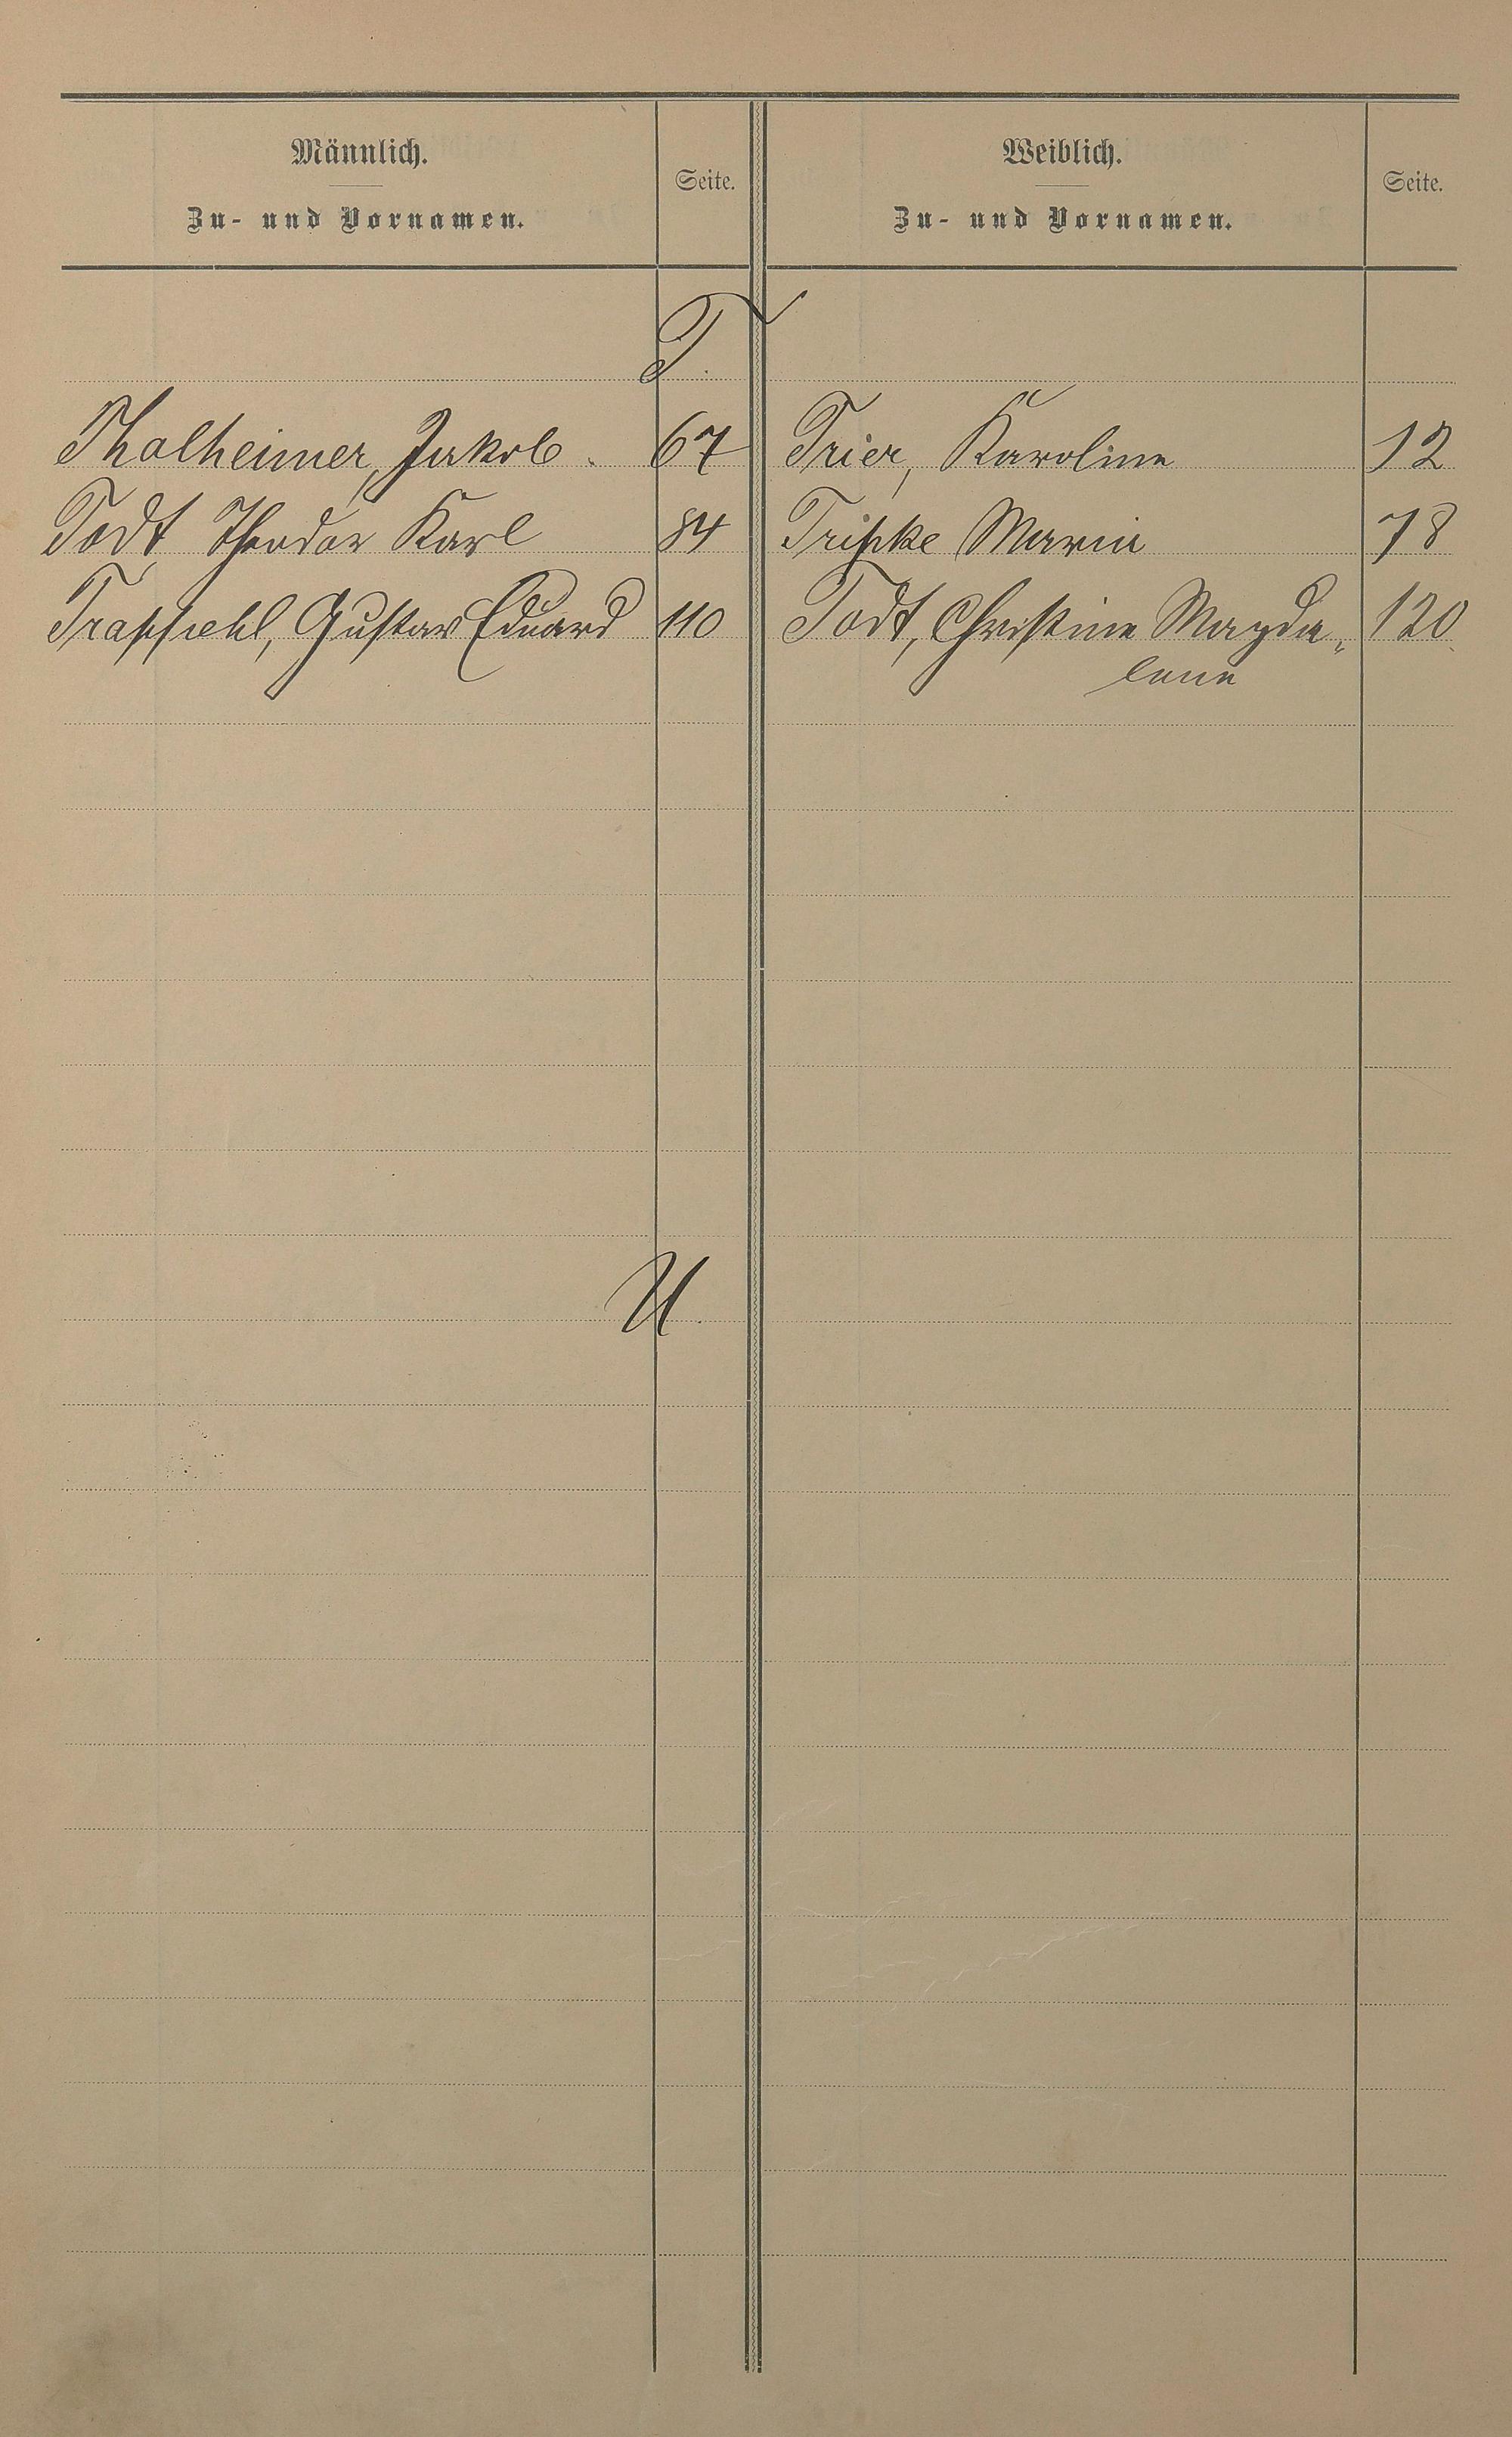 Männlich.
Zu- und Vornamen.
Seite.
Weiblich.
Zu- und Vornamen.
Seite.
T.
Thalheimer, Jakob. 67
Trier, Karoline 12
Todt, Theodor Karl 84
Tripke Maria 78
Gustav Eduard 110
Todt, Christine Magda„ 120
lene
U.